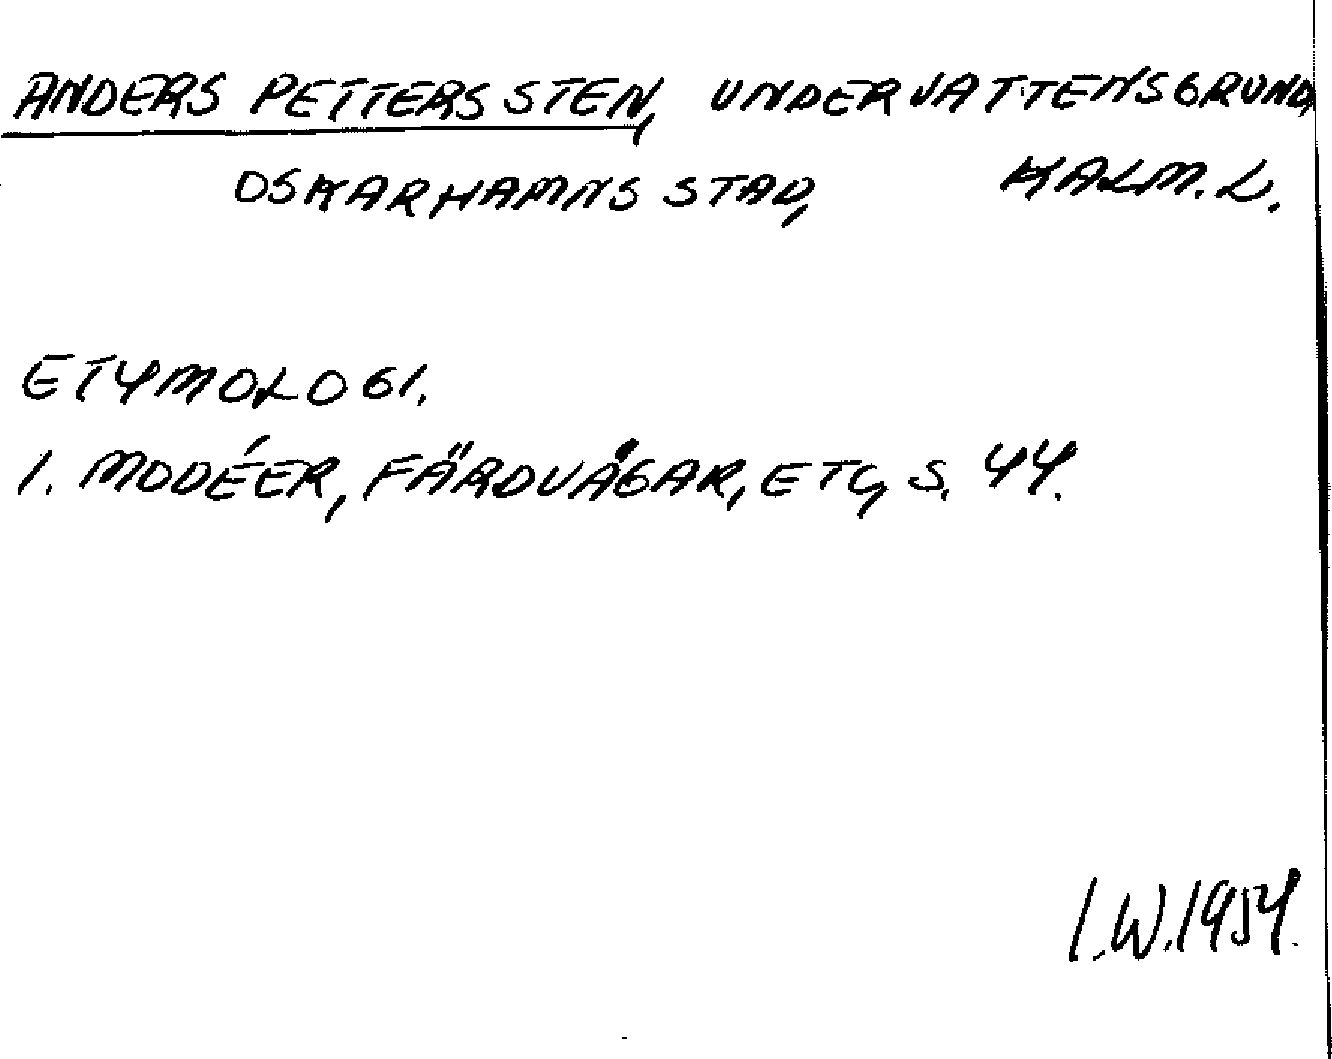 ANDERS PETTERS STEN, UNDERVATTENSGRUND,
OSKARHAMNS STAD, KALM. L.
ETYMOLOGI.
1. MODÉER, FÄRDVÅGAR, ETC, S. 44.
I.W. 1954.